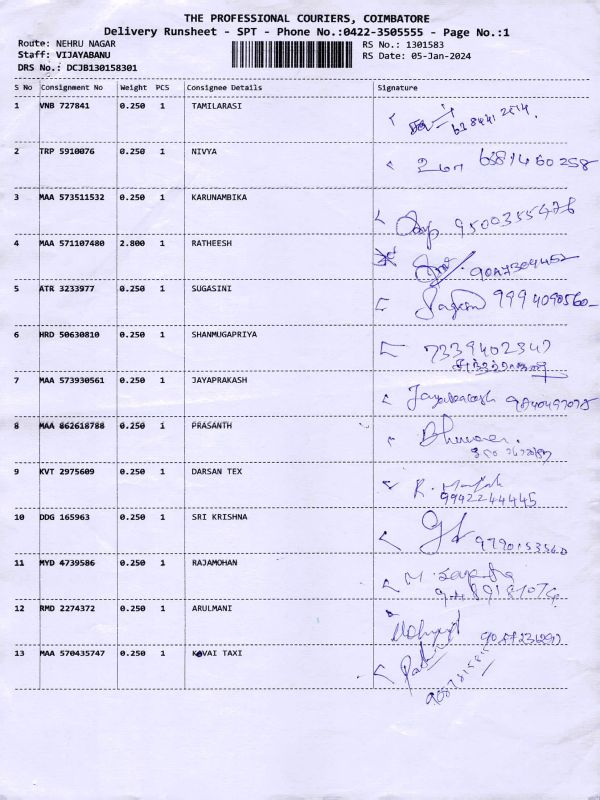 THE PROFESSIONAL COURIERS, COIMBATORE
Delivery Runsheet - SPT - Phone No.:0422-3505555 - Page No.:1
Route: NEHRU NAGAR
RS No.: 1301583
Staff: VIJAYABANU
RS Date: 05-Jan-2024
DRS No.: DCJB130158301
S No Consignment No Weight PCS Consignee Details Signature
1 VNB 727841 0.250 1 TAMILARASI
2 TRP 5910076 0.250 1 NIVYA
உமா 6381460258
3 MAA 573511532 0.250 1 KARUNAMBIKA
9500355476
4 MAA 571107480 2.800 1 RATHEESH
9047304452
5 ATR 3233977 0.250 1 SUGASINI
9994090560
6 HRD 50630810 0.250 1 SHANMUGAPRIYA
7339402347
7 MAA 573930561 0.250 1 JAYAPRAKASH
Jayaprakash
8 MAA 862618788 0.250 1 PRASANTH
9 KVT 2975609 0.250 1 DARSAN TEX
9942244445
10 DDG 165963 0.250 1 SRI KRISHNA
9790153540
11 MYD 4739586 0.250 1 RAJAMOHAN
12 RMD 2274372 0.250 1 ARULMANI
13 MAA 570435747 0.250 1 KOVAI TAXI